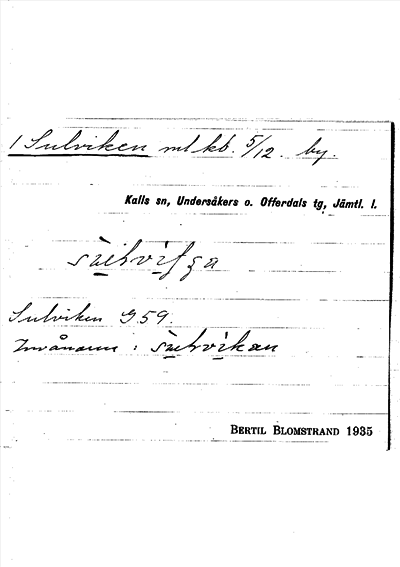 1 Sulviken ml kb. 5/12. by.
Kalls sn, Undersåkers o. Offerdals tg, Jämtl. l.
Sulviken G 59.
Invånarna :
BERTIL BLOMSTRAND 1935